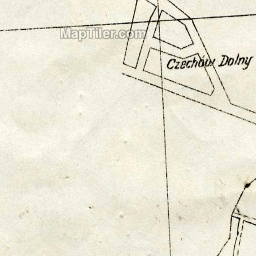 MapTiler.com
Czechów Dolny